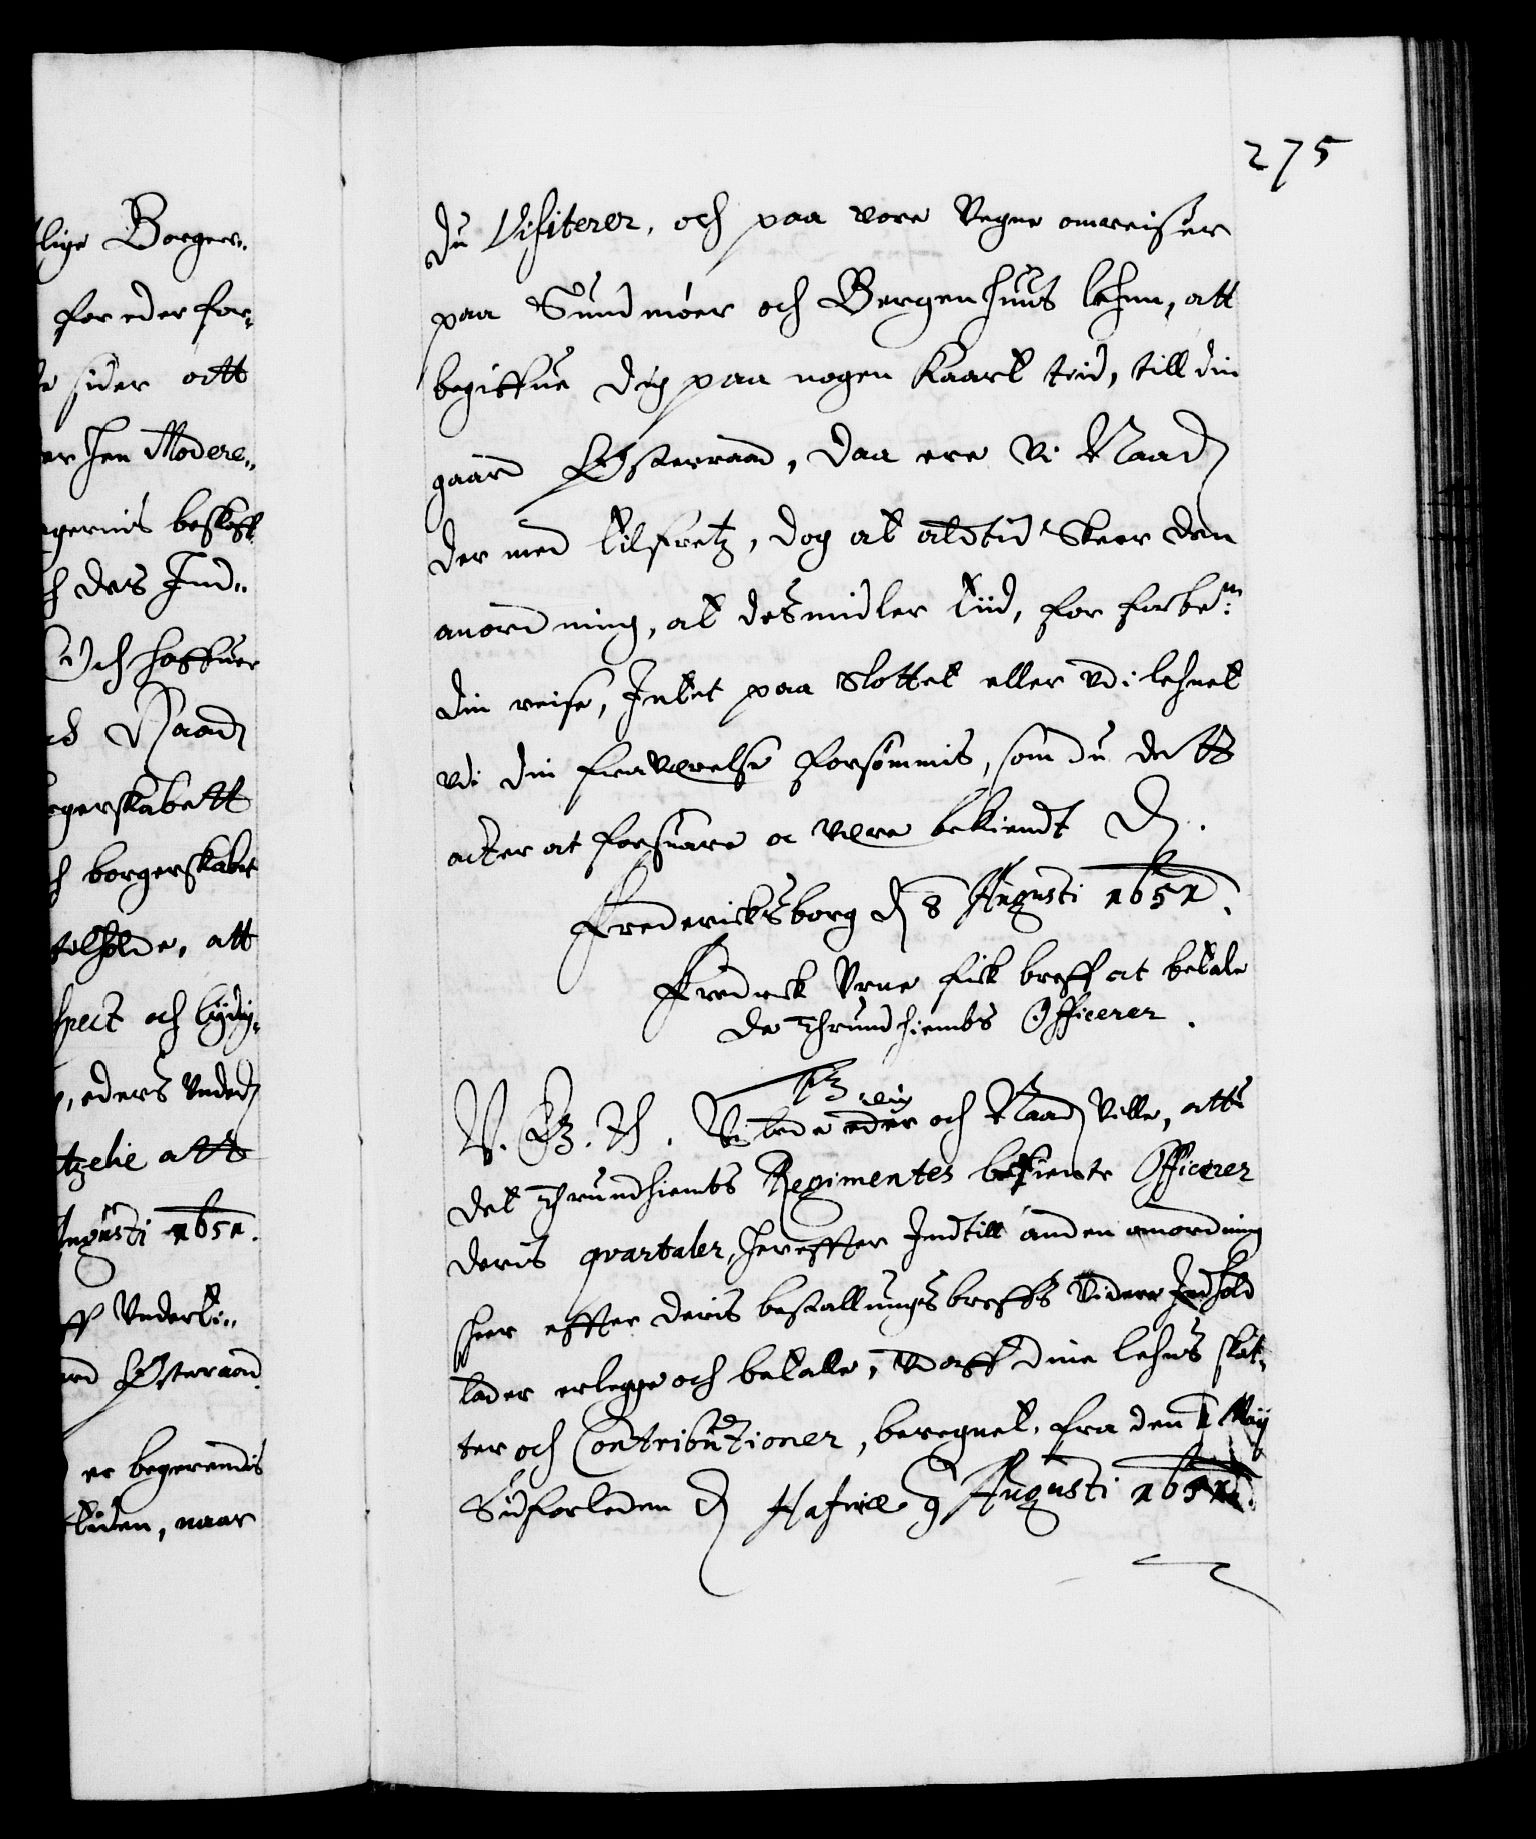 275
lige Borgers„
for eder for„
sider att
er hen Modere„
gernis beskaff
des Ind„
Och haffuer
Naad
gerskabett
borgerskabet
tilholde, att
spect och lydig„
, eders Vnded
tzelie att
Augusti 1651.
ff Vnderti„
rd Østeraad
er begerendis
tiiden, naar
du Visiterer, och paa vore Vegne omreiser
paa Sundmøer och Bergenhuus lehnn, att
begiffue dig paa nogen Kaart tiid, till din
gaard Østerraad, daa ere Vi Naad
der med tilfretz, dog at altid Skeer den
anordning, at desmidler tiid, for forbe:te
din reise, Intet paa Slottet eller vdi lehnet
vdi din fraværelse forsømmis, som du dett
acter at forsuare oc være bekiendt D.
Fredericksborg d 8 Augusti 1651.
Fredrick Vrne fick breff at betale
de Thrundhiembs Officerer.
V. G. T. Vi bede eder och Naad Ville, att
dig
det Thrundhiembs Regimentes betiente Officerer
deris qvartaler, hereffter Indtill anden anordning
skeer effter deris bestallungs breffs Videre Indhold
lader erlegge och betalle, Vdaff dine lehns skat„
ter och Contributioner, beregnet fra den 1 Maij
Sidforleden D Hafniæ 9 Augusti 1651.